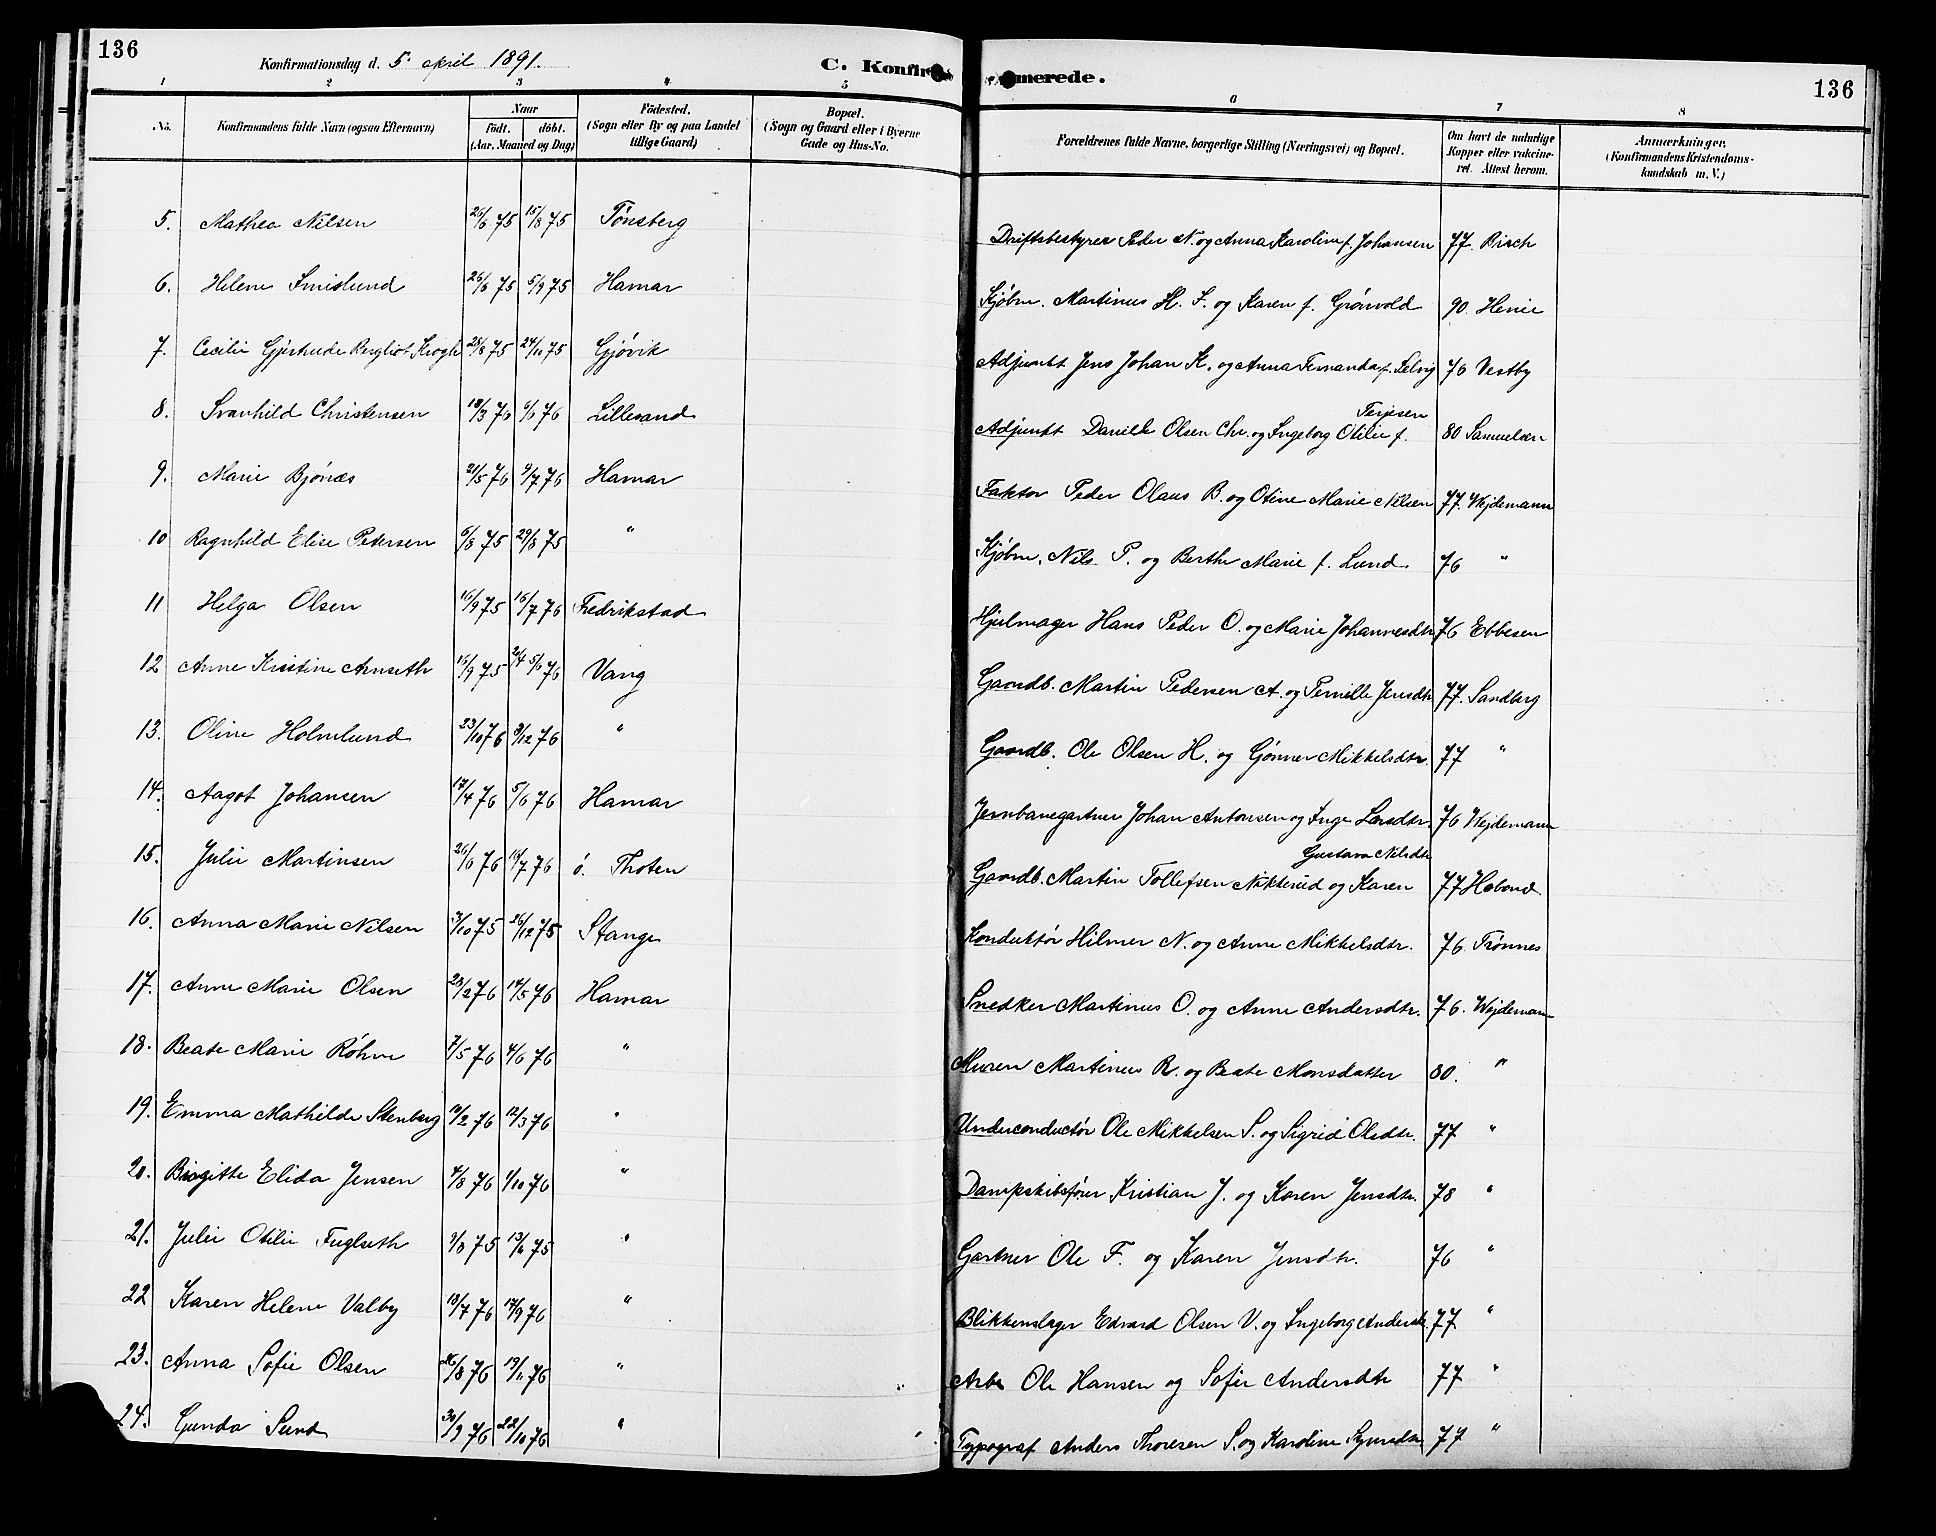 136
Konfirmationsdag d. 5. april 1891.
C. Konfirmerede.
136
1 2 3 4 5 6 7 8
No.
Konfirmandens fulde Navn (ogsaa Efternavn)
Naar
födt. döbt.
(Aar, Maaned og Dag)
Födested.
(Sogn eller By og paa Landet
tillige Gaard)
Bopæl.
(Sogn og Gaard eller i Byerne
Gade og Hus-No.
Forældrenes fulde Navne, borgerlige Stilling (Næringsvei) og Bopæl.
Om havt de naturlige
Kopper eller vakcine-
ret. Attest herom.
Anmærkninger.
(Konfirmandens Kristendoms-
kundskab m. V.)
5. Mathea Nilsen 25/6 75 15/8 75 Tønsberg Driftsbestyrer Peder N. og Anna Karoline f. Johansen 77. Birch
6. Helene Smislund 26/6 75 5/9 75 Hamar Kjøbm. Martinus H. S. og Karen f. Grønvold 90. Henie
7. Cecilie Gjertrude Bergliot Krogh 28/8 75 24/10 75 Gjøvik Adjunkt Jens Johan K. og Anna Fernanda f. Selvig 76 Vestby
8. Svanhild Christensen 18/3 76 6/6 76 Lillesand Adjunkt Danielle Olsen Chr. og Ingeborg Otilie f. Terjesen 80 Samuelsen
9. Marie Bjønæs 21/5 76 9/7 76 Hamar Faktor Peder Olaus B. og Otine Marie Nilsen 77. Wejdemann
10 Ragnhild Elise Petersen 6/8 75 29/8 75 " Kjøbm. Nils P. og Berthe Marie f. Lund 76 "
11 Helga Olsen 16/9 75 16/7 76 Fredrikstad Hjulmager Hans Peder O. og Marie Johannesdtr 76 Ebbesen
12 Anne Kristine Arnseth 15/9 75 2/4 5/6 76 Vang Gaardb. Martin Pedersen A. og Pernille Jensdtr 77. Sandberg
13. Oline Holmlund 23/10 76 3/12 76 " Gaardb. Ole Olsen H. og Gønner Mikkelsdtr. 77 "
14. Aagot Johansen 17/4 76 5/6 76 Hamar Jernbanegartner Johan Antonsen og Inge Larsdtr. 76 Wejdemann
15. Julie Martinsen 26/6 76 16/7 76 ø. Thoten Gaardb. Martin Tollefsen Nikterud og Karen Gustava Nilsdtr 77
16. Anna Marie Nilsen 3/10 75 26/12 75 Stange Konduktør Hilmer N. og Anne Mikkelsdtr. 76. Trønnes
17. Anne Marie Olsen 23/2 76 14/5 76 Hamar Snedker Martinus O. og Anne Andersdtr. 76. Wejdemann
18. Beate Marie Røhne 7/5 76 4/6 76 " Murer Martinus R. og Beate Monsdatter 80. "
19. Emma Mathilde Stenberg 10/2 76 12/3 76 " Underconductør Ole Mikkelsen S. og Sigrid Olsdtr. 77 "
20. Birgitte Elida Jensen 4/8 76 1/10 76 " Dampskibsfører Kristian J. og Karen Jensdtr. 78 "
21. Julie Otilie Fuglseth 9/3 75 13/6 75 " Gartner Ole F. og Karen Jensdtr. 76 "
22 Karen Helene Valby 18/7 76 17/9 76 " Blikkenslager Edvard Olsen V. og Ingeborg Andersdtr 77 "
23. Anna Sofie Olsen 26/8 76 19/11 76 " Arb. Ole Hansen og Sofie Andersdtr 77 "
24. Gunda Sund 30/9 76 22/10 76 " Typograf Anders Thoresen S. og Karoline 77 "